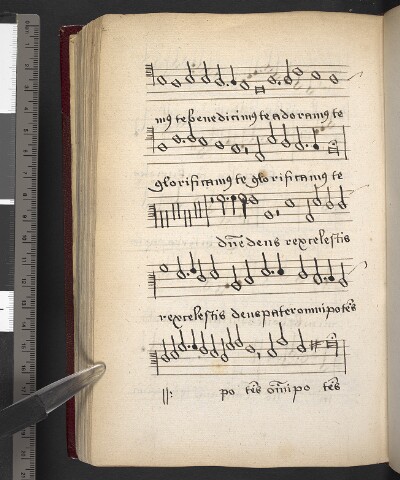 mꝰ te benedicimꝰ te adoramꝰ te
glorificamꝰ te glorificamꝰ te
dn̄e deus rex celestis
rex celestis deus pater omnipotēs
po tēs om̄ipo tēs